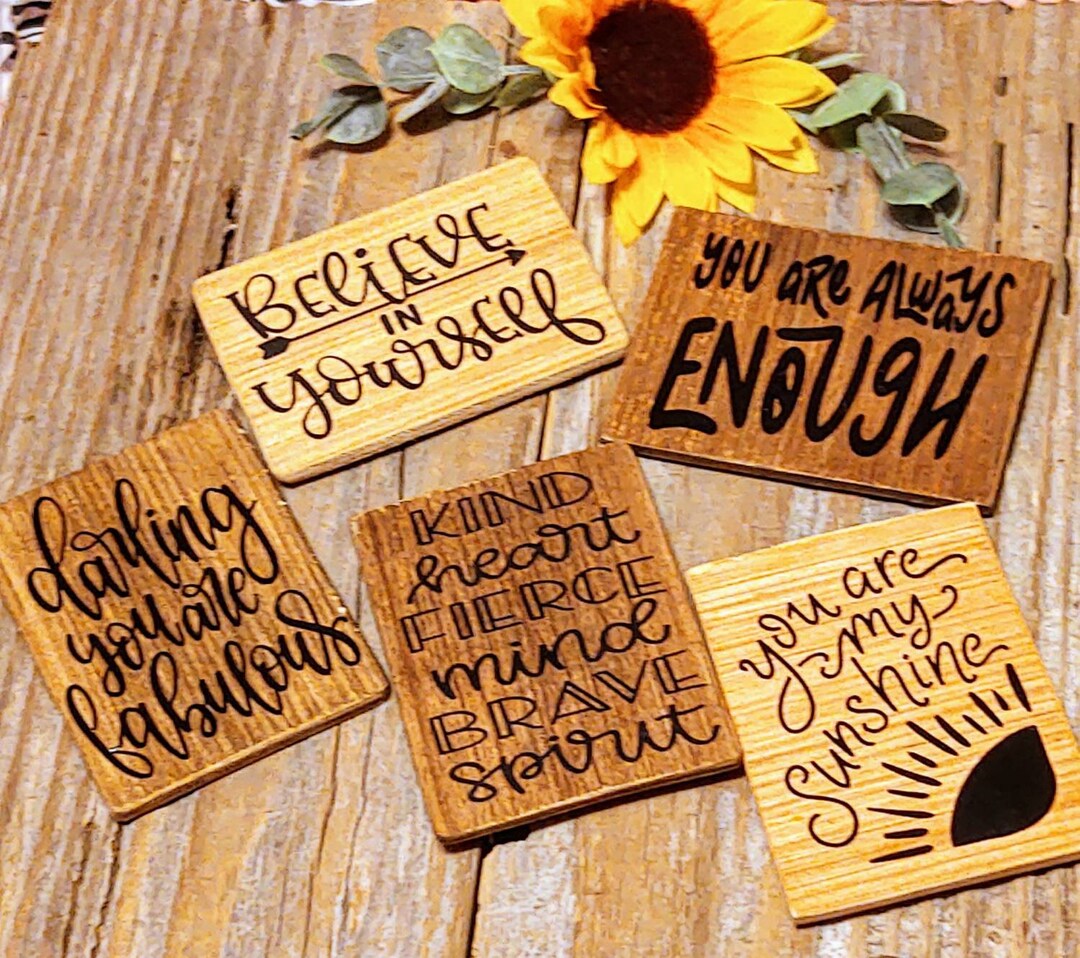 BELiEVE
IN
YOURSELF
YOU ARe ALWaYS
ENOUGH
darling
you are
fabulous
KIND
heart
FIERCE
mind
BRAVE
spirit
you are
my
sunshine